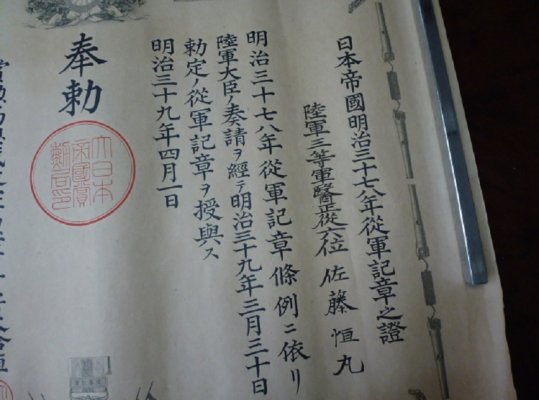 日本帝國明治三十七八年從軍記章之證
陸軍三等軍醫正從六位 佐藤恒丸
明治三十七八年從軍記章條例ニ依リ
陸軍大臣ノ奏請ヲ經テ明治三十九年三月三十日
勅定ノ從軍記章ヲ授與ス
明治三十九年四月一日
奉勅
大日本
帝國賞
勲局印